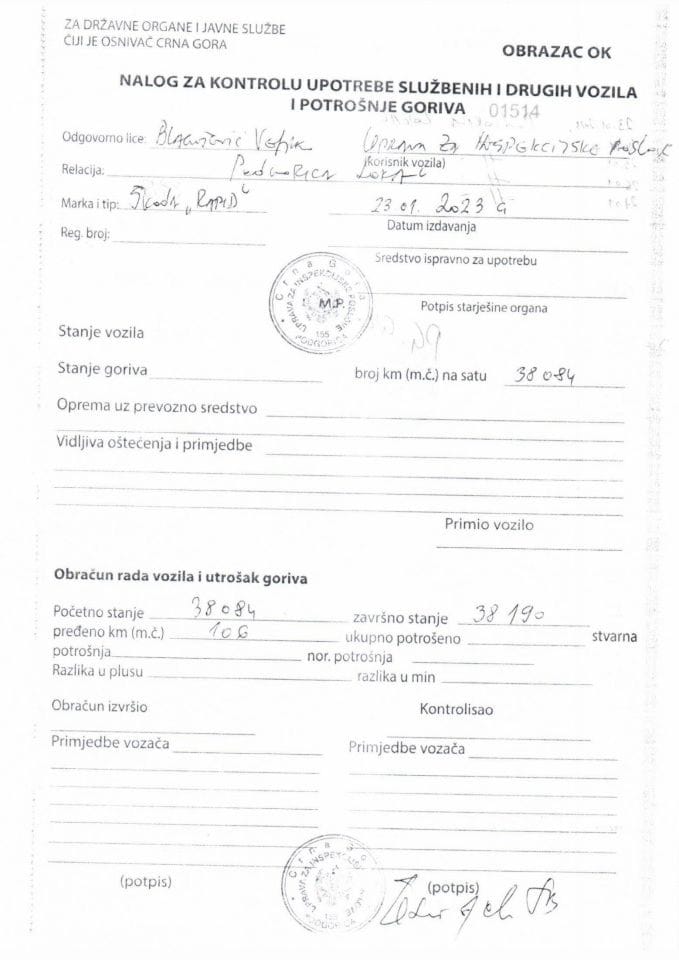 ZA DRŽAVNE ORGANE I JAVNE SLUŽBE
ČIJI JE OSNIVAČ CRNA GORA
OBRAZAC OK
NALOG ZA KONTROLU UPOTREBE SLUŽBENIH I DRUGIH VOZILA
I POTROŠNJE GORIVA 01514
Odgovorno lice: Uprava za inspekcijske poslove
Relacija: Podgorica Lokal (korisnik vozila)
Marka i tip: Škoda „RAPID" 23 01. 2023 G
Reg. broj: Datum izdavanja
Sredstvo ispravno za upotrebu
Crna Gora UPRAVA ZA INSPEKCIJSKE POSLOVE PODGORICA 155
M.P.
Potpis starješine organa
Stanje vozila
Stanje goriva broj km (m.č.) na satu 38084
Oprema uz prevozno sredstvo
Vidljiva oštećenja i primjedbe
Primio vozilo
Obračun rada vozila i utrošak goriva
Početno stanje 38084 završno stanje 38190
pređeno km (m.č.) 106 ukupno potrošeno stvarna
potrošnja nor. potrošnja
Razlika u plusu razlika u min
Obračun izvršio Kontrolisao
Primjedbe vozača Primjedbe vozača
(potpis) (potpis)
Crna Go UPRAVA ZA INSPEKCIJSKE POSLOVE PODGORICA